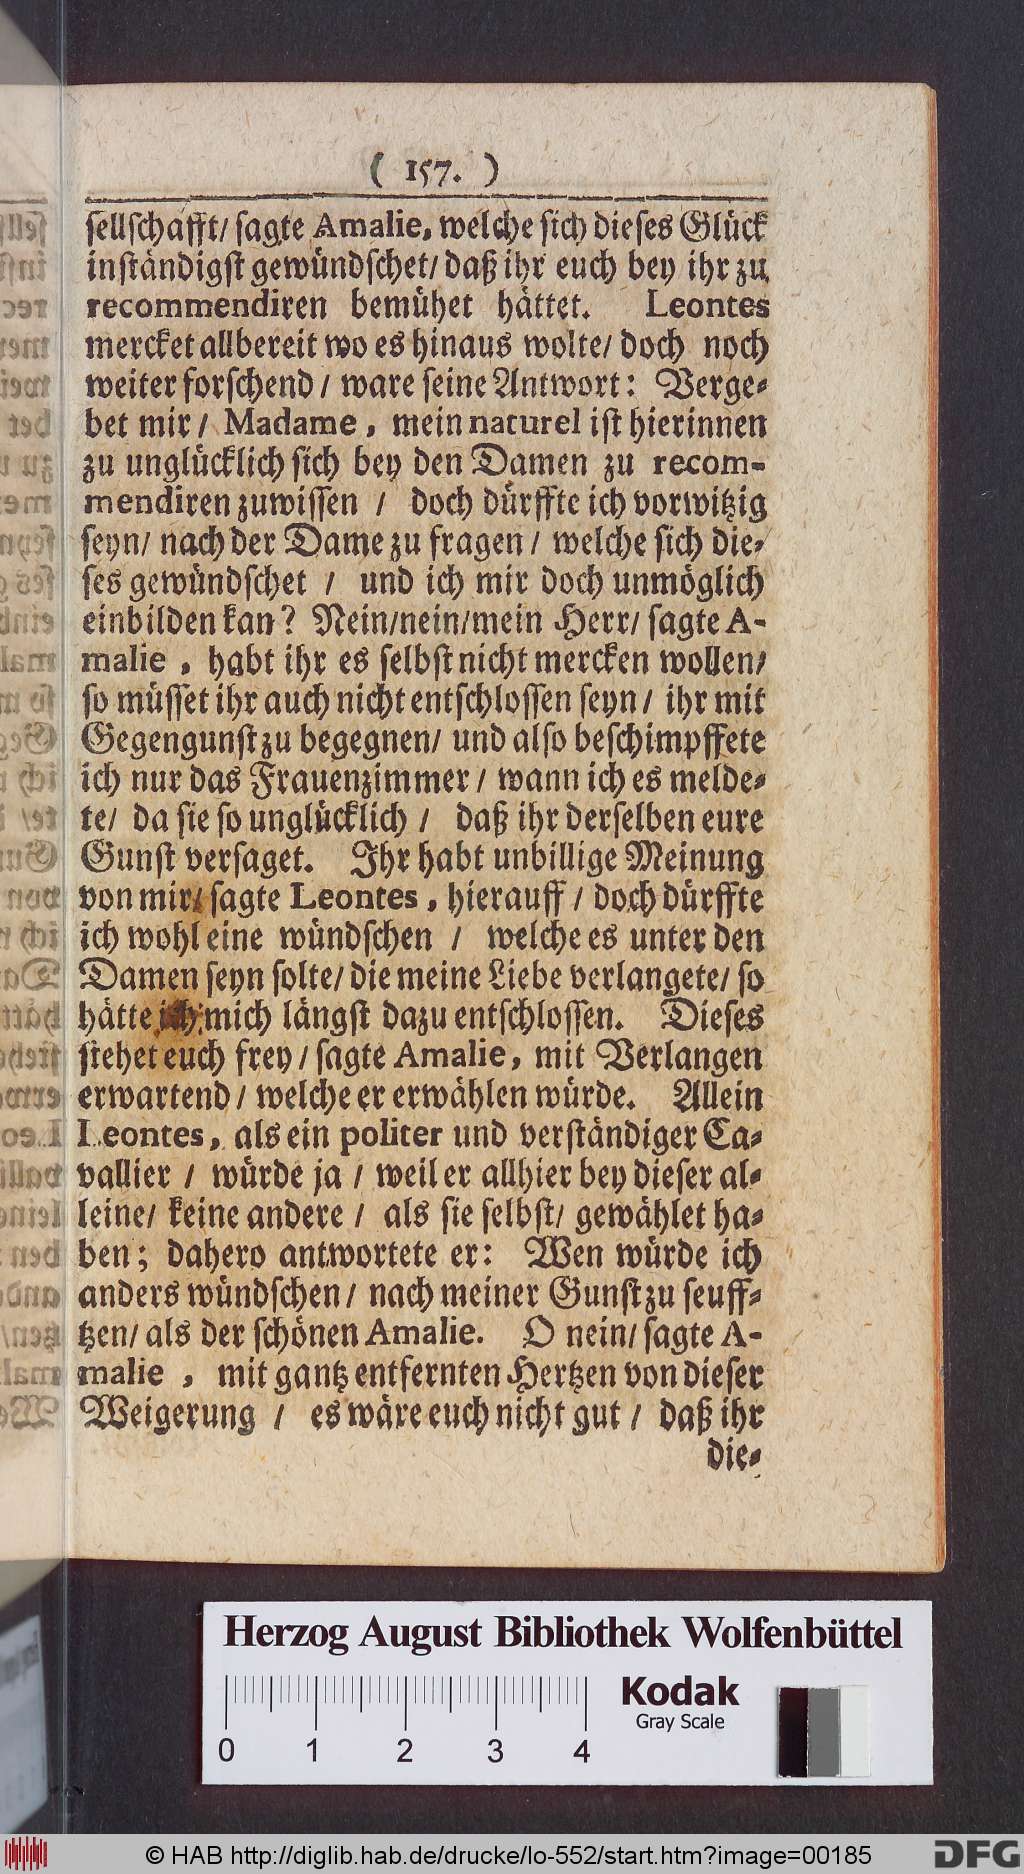 ( 157. )
sellschafft/ sagte Amalie, welche sich dieses Glück
inständigst gewündschet/ daß ihr euch bey ihr zu
recommendiren bemühet hättet. Leontes
mercket allbereit wo es hinaus wolte/ doch noch
weiter forschend / ware seine Antwort: Verge-
bet mir / Madame, mein naturel ist hierinnen
zu unglücklich sich bey den Damen zu recom-
mendiren zuwissen / doch dürffte ich vorwitzig
seyn/ nach der Dame zu fragen / welche sich die-
ses gewündschet / und ich mir doch unmöglich
einbilden kan? Nein/nein/mein Herr/ sagte A-
malie, habt ihr es selbst nicht mercken wollen/
so müsset ihr auch nicht entschlossen seyn / ihr mit
Gegengunst zu begegnen/ und also beschimpffete
ich nur das Frauenzimmer / wann ich es melde-
te/ da sie so unglücklich / daß ihr derselben eure
Gunst versaget. Ihr habt unbillige Meinung
von mir/ sagte Leontes, hierauff / doch dürffte
ich wohl eine wündschen / welche es unter den
Damen seyn solte/ die meine Liebe verlangete/ so
hätte ich mich längst dazu entschlossen. Dieses
stehet euch frey / sagte Amalie, mit Verlangen
erwartend / welche er erwählen würde. Allein
Leontes, als ein politer und verständiger Ca-
vallier / würde ja / weil er allhier bey dieser al-
leine/ keine andere / als sie selbst/ gewählet ha-
ben; dahero antwortete er: Wen würde ich
anders wündschen / nach meiner Gunst zu seuff-
tzen/ als der schönen Amalie. O nein/ sagte A-
malie, mit gantz entfernten Hertzen von dieser
Weigerung / es wäre euch nicht gut / daß ihr
die-
Herzog August Bibliothek Wolfenbüttel
Kodak
Gray Scale
0 1 2 3 4
© HAB http://diglib.hab.de/drucke/lo-552/start.htm?image=00185
DFG